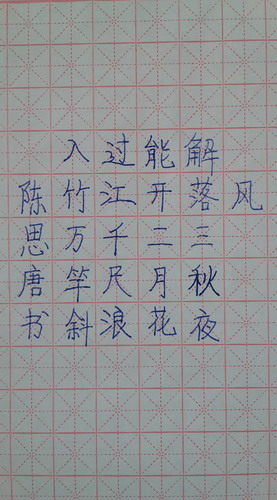 风
解落三秋夜
能开二月花
过江千尺浪
入竹万竿斜
陈思唐书